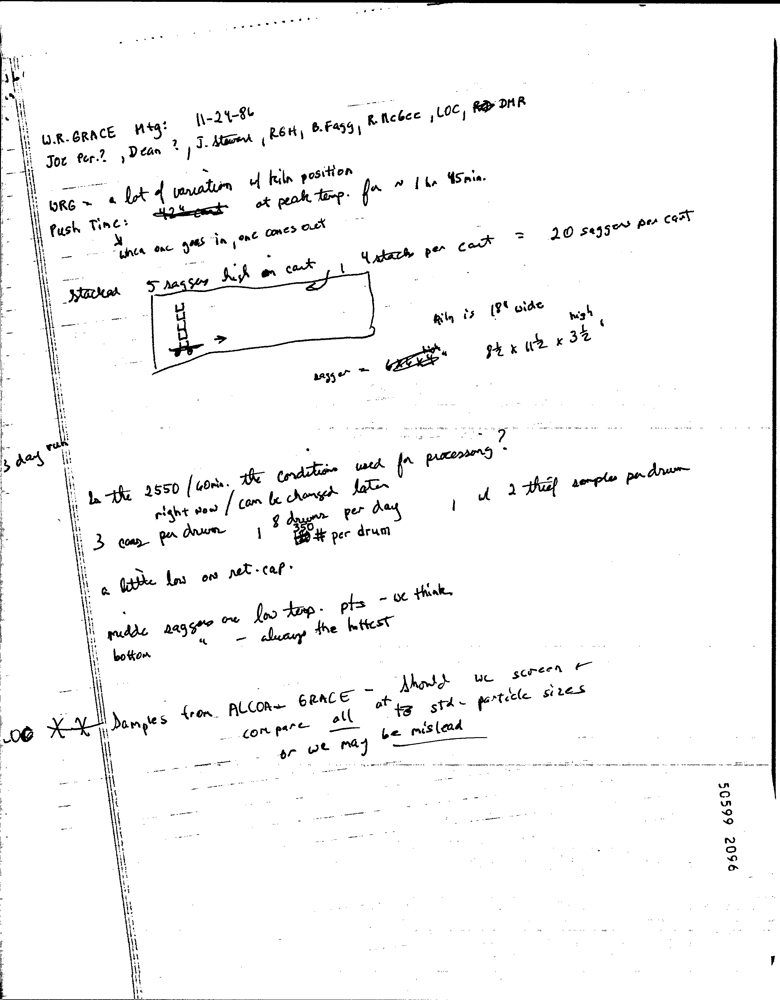 W.R. GRACE Mtg: 11-24-86
Joe Per.?, Dean ?, J. Stewart, RGH, B. Fagg, R. McGee, LOC, DMR
WRG - a lot of variation w/ kiln position
Push Time: 424 at peak temp. for ~ 1 hr 45 min.
when one goes in, one comes out
stacked 5 saggers high on cart, 4 stacks per cart = 20 saggers per cart
Kiln is 18" wide
sagger = 6x6x4" high 8½ x 11½ x 3½ high "
3 day run
Is the 2550 / 60 min. the conditions used for processing?
right now / can be changed later
3 cars per drum, 8 drums per day, w/ 2 thief samples per drum
350 # per drum
a little low on ret. cap.
middle saggers are low temp. pts - we think
bottom " - always the hottest
LOC XX Samples from ALCOA - GRACE - Should we screen +
compare all at std. particle sizes
or we may be mislead
50599 2096